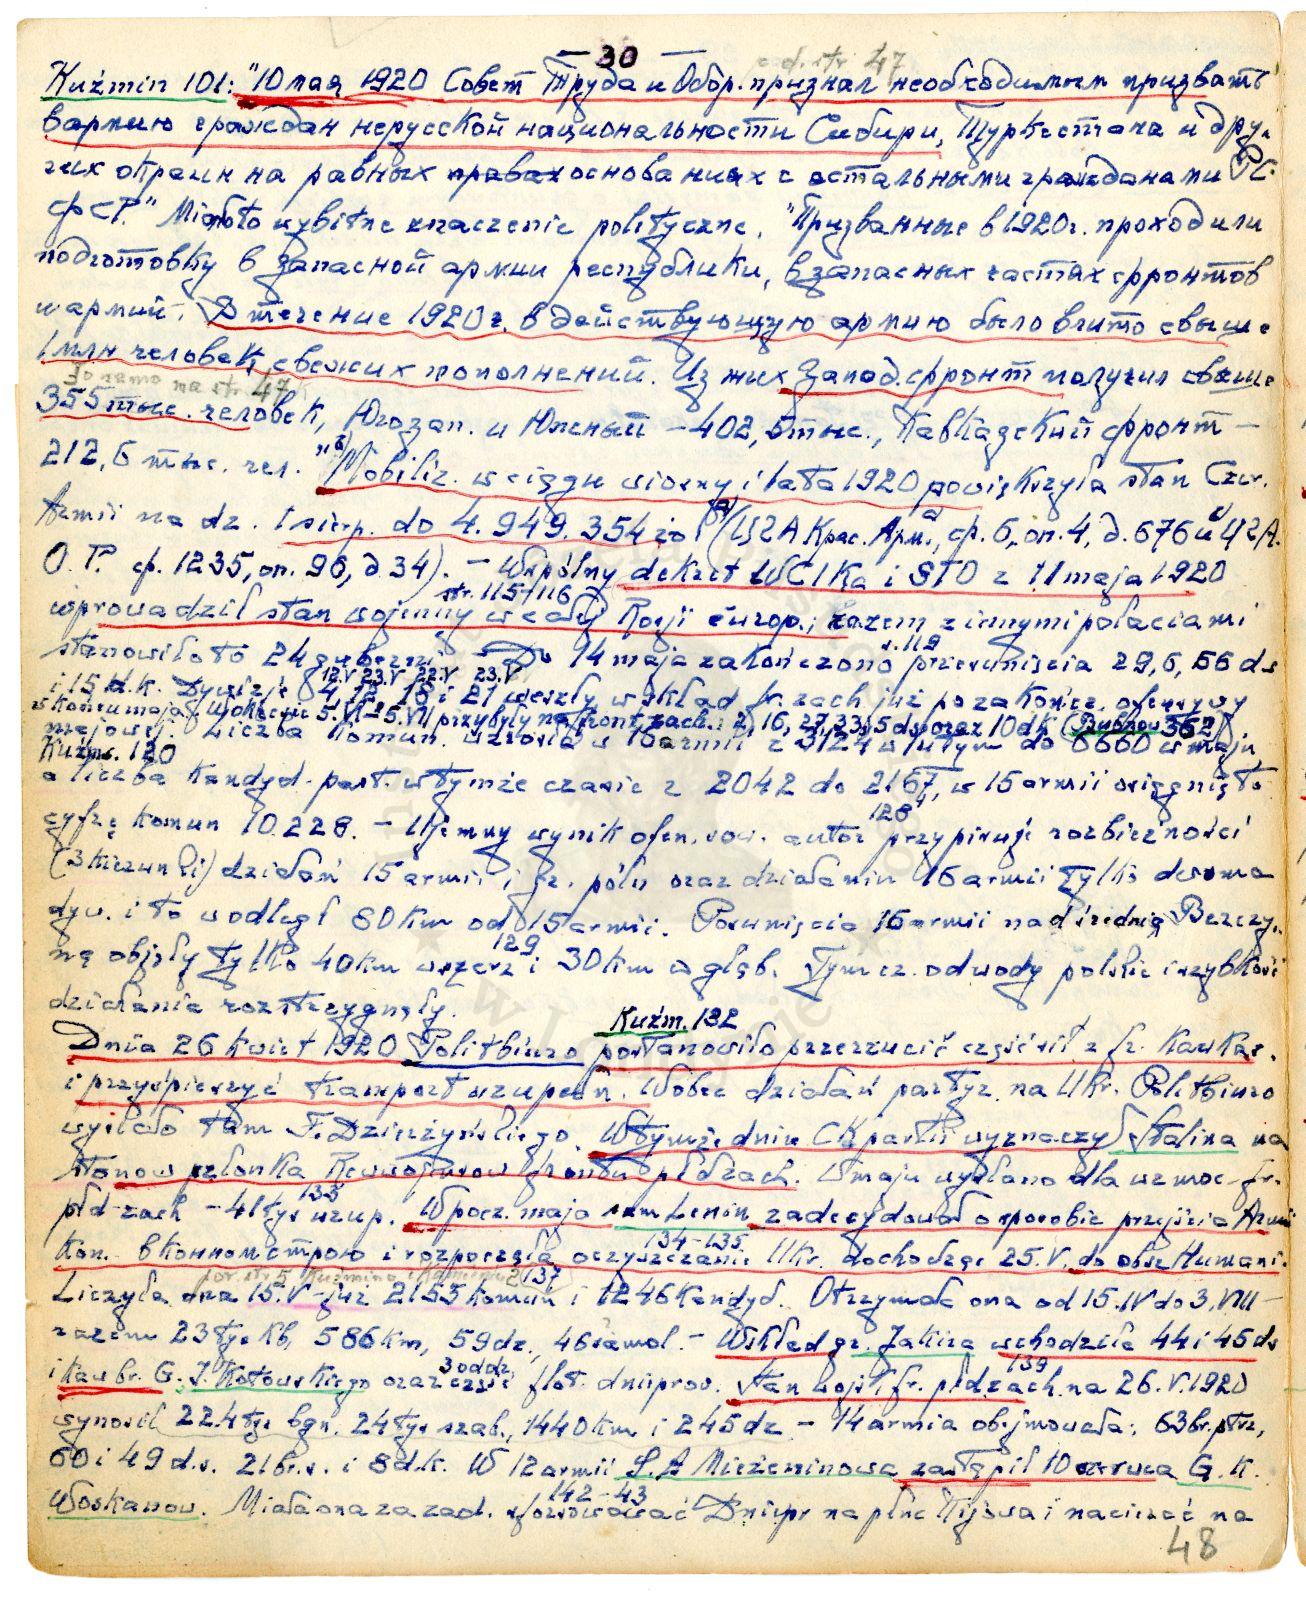 — 30 —
c.d. str 47
Kuźmin 101: "10 мая 1920 Совет Труда и Обор. признал необходимым призвать
в армию граждан нерусской национальности Сибири, Туркестана и дру-
гих окраин на равных основаниях с остальными гражданами РС
ФСР." Miało wybitne znaczenie polityczne. "Призванные в 1920г. проходили
подготовку в запасной армии республики, в запасных частях фронтов
и армий. В течение 1920г. в действующую армию было влито свыше
1 млн человек свежих пополнений. Из них Запод. фронт получил свыше
To samo na str 47
355 тыс. человек, Югозап. и Южный – 402,5 тыс., Кавказский фронт –
212,5 тыс. чел. "Mobiliz. w ciągu wiosny i lata 1920 powiększyła stan Czer.
Armii na dz. 1 sierp. do 4.949.354 żo (ЦГА Крас. Арм., ф. 6, оп. 4, д. 676 и ЦГА.
О. Р. ф. 1235, оп. 96, д 34). – Wspólny dekret WCIKa i STO z 11 maja 1920
str. 115-116
wprowadził stan wojenny w całej Rosji europ.; razem z innymi połaciami
stanowiło to 24 gubernii – Do 14 maja zakończono przesunięcia 29, 6, 56 ds
s. 119
12.V 23.V 22.V 23.V
i 15 d.k. Dywizje 4, 12, 18 i 21 weszły w skład fr. zach już po zakończ. ofensywy
w końcu maja W okresie 5.VI – 5.VII przybyły na front zach.: 2, 16, 27, 33, 5 ds oraz 10 dk (Bubnow 362)
majowej. Liczba komun. wzrosła w 16 armii z 3124 w lutym do 6660 w maju
Kuźm. 120
a liczba kandyd. part. w tymże czasie z 2042 do 2167, w 15 armii osiągnięto
128
cyfrę komun 10.228. – Ujemny wynik ofen. sow. autor przypisuje rozbieżności
(3 kierunki) działań 15 armii i gr. półn oraz działaniu 16 armii tylko dwoma
dyw. i to w odległ 80 km od 15 armii. Posunięcia 16 armii nad średnią Berezy-
129
ną objęły tylko 40 km wszerz i 30 km w głąb. Tymcz. odwody polskie i szybkość
działania rozstrzygnęły.
Kuźm. 132
Dnia 26 kwiet 1920 Politbiuro postanowiło przerzucić część sił z fr. kawkaz.
i przyśpieszyć transport uzupełn. Wobec działań partyz. na Ukr. Politbiuro
wysłało tam F. Dzierżyńskiego. W tymże dniu CK partii wyznaczył Stalina na
stanow członka Rewwojensow frontu płdzach. W maju wysłano dla wzmoc. fr.
133
płd-zach – 41 tys uzup. W pocz. maja sam Lenin zadecydował o sposobie przejścia Armii
134–135
Kon. в конном строю i rozpoczęła oczyszczanie Ukr. dochodząc 25.V. do obsz Humani.
por. str 5 Kuźmina i
137
Liczyła ona 15.V – już 2153 komun i 1246 kandyd. Otrzymała ona od 15.IV do 3.VIII –
razem 23 tys kb, 586 km, 59 dz, 46 samol. – W skład gr. Jakira wchodziła 44 i 45 ds
3 oddz.
139
i kaw br. G. I. Kotowskiego oraz część flot. dnieprow. Stan wojsk fr. płdzach. na 26.V.1920
wynosił 22.4 tys bgn. 24 tys szab., 1440 km i 245 dz – 14 armia obejmowała: 63 br. strz,
60 i 49 d.s. 21 br. s. i 8 d.k. W 12 armii S. A Mieżeninowa zastąpił 10 czerwca G. K.
142–43
Woskanow. Miała ona za zad. sforsować Dniepr na płnc Kijowa i nacierać na
48